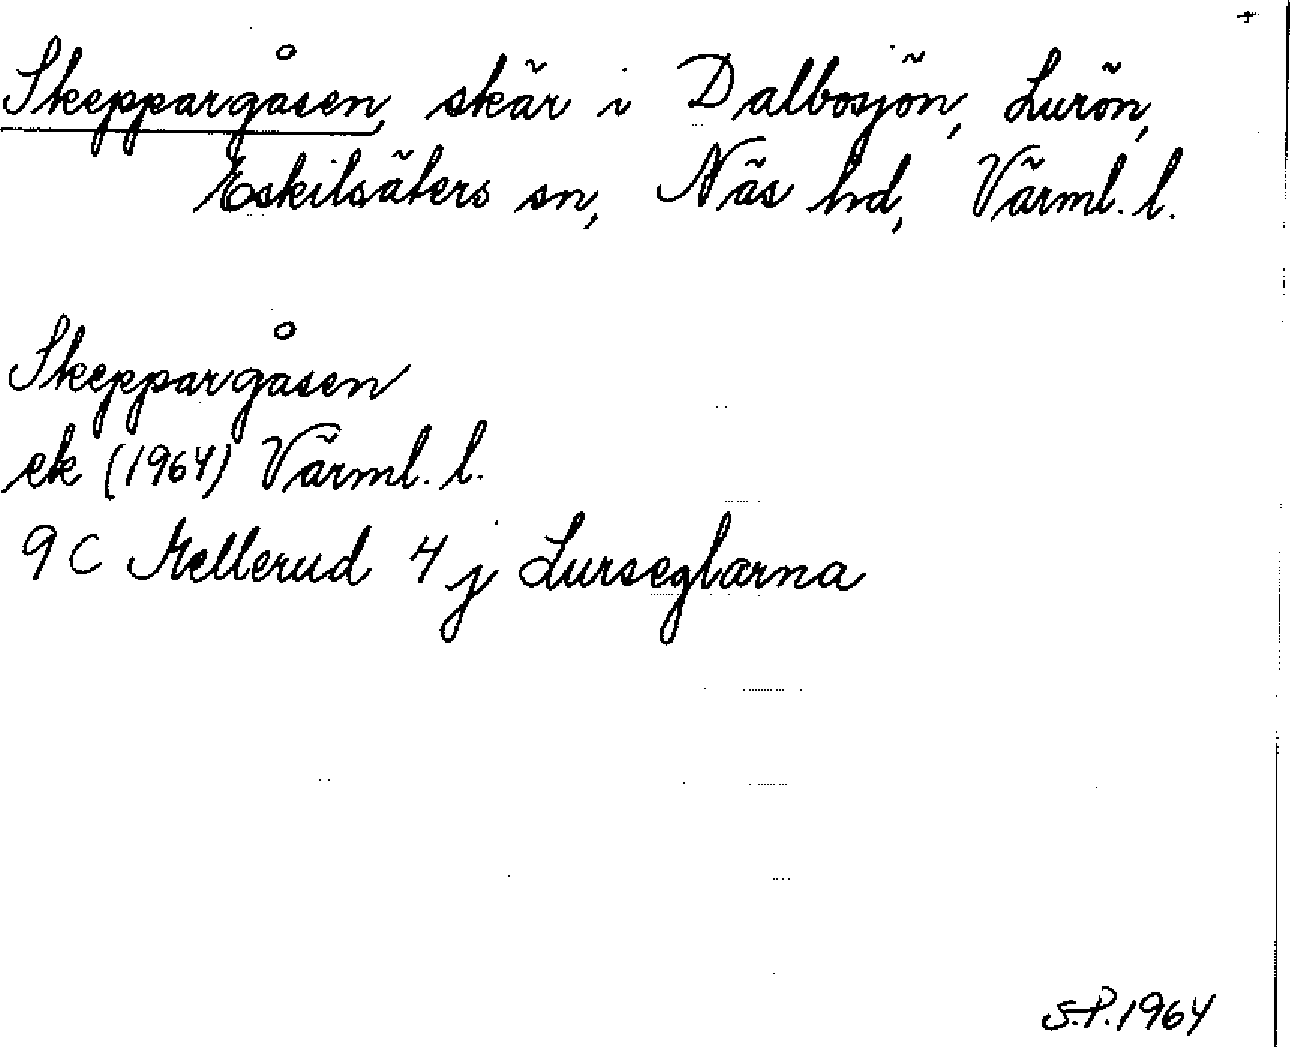 Skeppargåsen, skär i Dalbosjön, Lurön,
Eskilsäters sn, Näs hd, Värml. l.
Skeppargåsen
ek (1964) Värml. l.
9 C Mellerud 4 j Lurseglarna
S.P. 1964